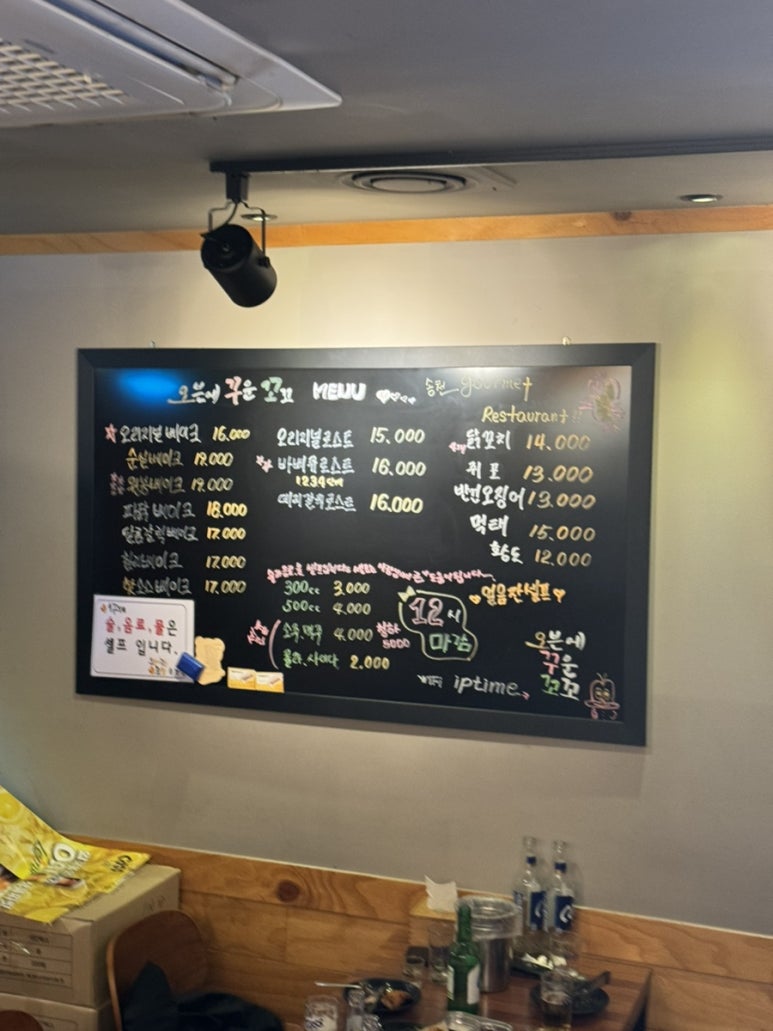 오븐에 꾸운 꼬꼬 MENU
송천 gourmet
Restaurant!!
오리지널 베이크 16.000
순살베이크 19.000
윙봉베이크 19.000
파닭 베이크 18.000
달콤갈릭베이크 17.000
베이크 17.000
핫소스베이크 17.000
오리지널로스트 15.000
바베큐로스트 16.000
1234단계
로스트 16.000
닭꼬치 14.000
쥐포 13.000
반건오징어 13.000
먹태 15.000
황도 12.000
300cc 3.000
500cc 4.000
소주.맥주 4.000
청하
5000
콜라.사이다 2.000
12시
마감
얼음잔셀프
WiFi iptime
오븐에
꾸운
꼬꼬
술,음료,물은
셀프 입니다.